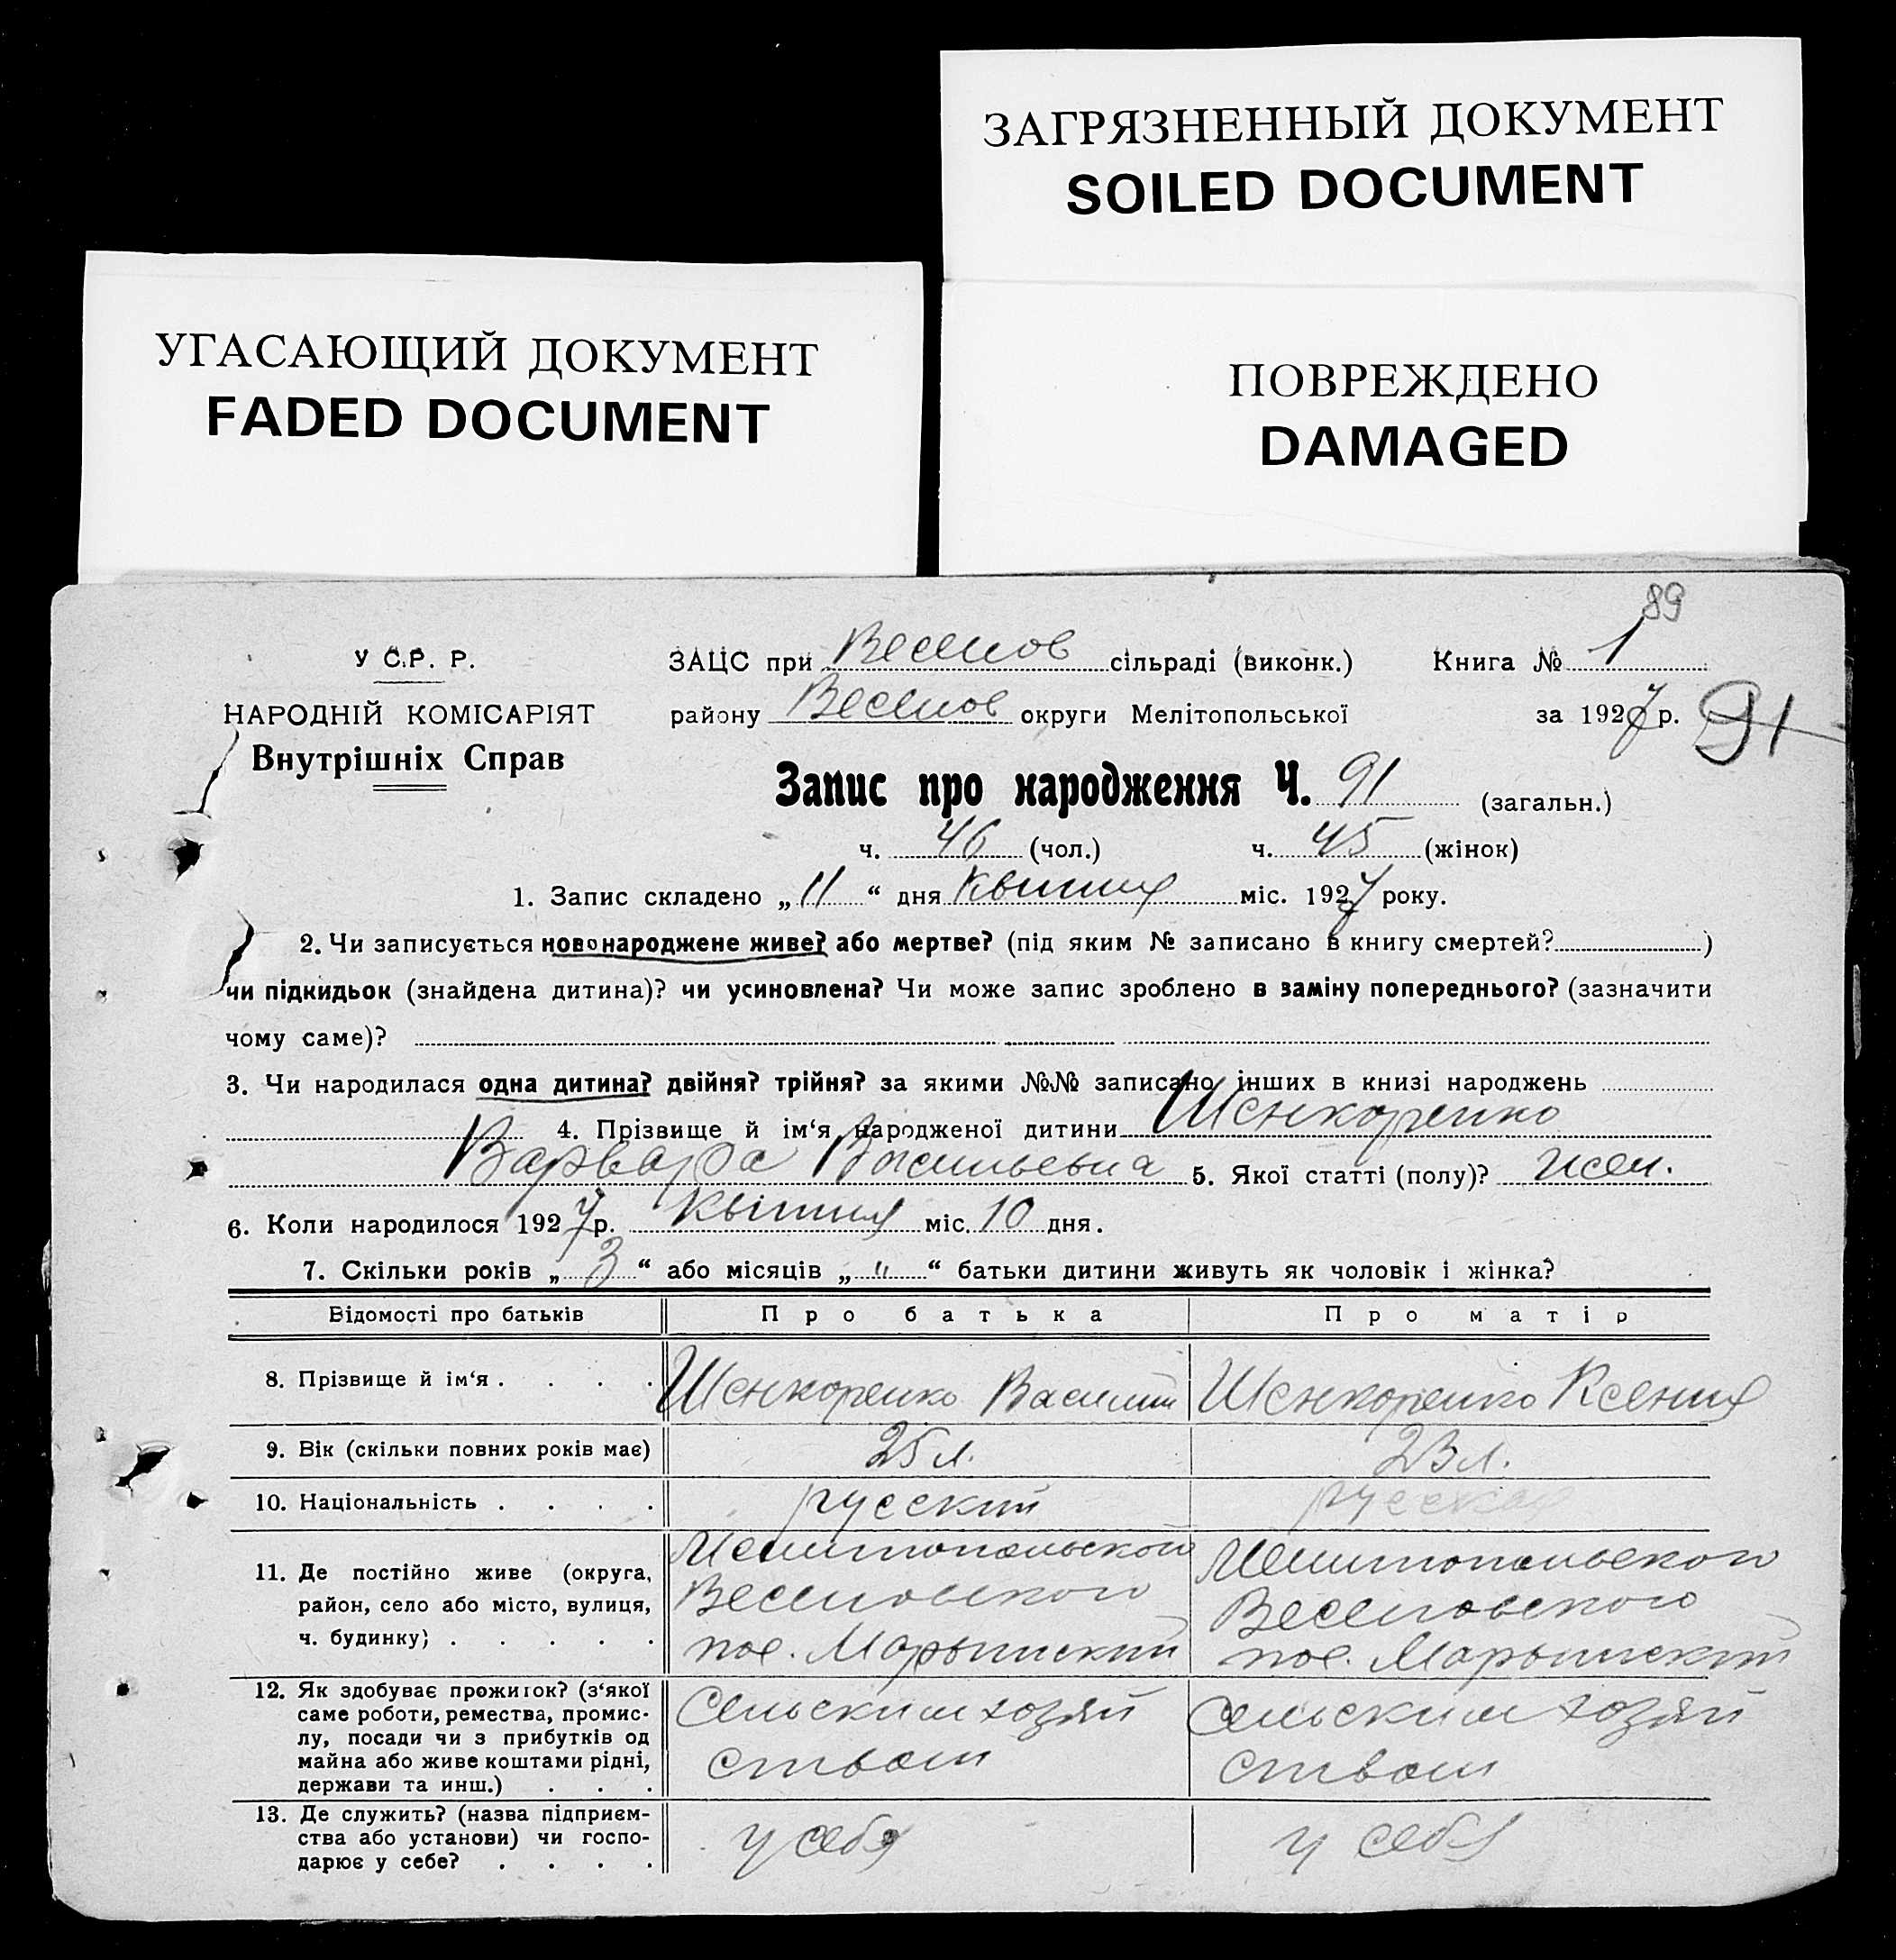 ЗАГРЯЗНЕННЫЙ ДОКУМЕНТ
SOILED DOCUMENT
УГАСАЮЩИЙ ДОКУМЕНТ
FADED DOCUMENT
ПОВРЕЖДЕНО
DAMAGED
89
У С.Р. Р.
НАРОДНІЙ КОМІСАРІЯТ
Внутрішніх Справ
ЗАЦС при Веселов сільраді (виконк.) Книга № 1
району Веселов округи Мелітопольської за 1927 р. 91
Запис про народження Ч. 91 (загальн.)
ч. 46 (чол.) ч. 45 (жінок)
1. Запис складено „ 11 “ дня Квітня міс. 1927 року.
2. Чи записується новонароджене живе? або мертве? (під яким № записано в книгу смертей? )
чи підкидьок (знайдена дитина)? чи усиновлена? Чи може запис зроблено в заміну попереднього? (зазначити
чому саме)?
3. Чи народилася одна дитина? двійня? трійня? за якими №№ записано інших в книзі народжень
4. Прізвище й ім‘я народженої дитини Шенкоренко
Варвара Васильевна 5. Якої статті (полу)? жен.
6. Коли народилося 1927 р. Квітня міс. 10 дня.
7. Скільки років „ 3 “ або місяців „ " “ батьки дитини живуть як чоловік і жінка?
Відомості про батьків Про батька Про матір
8. Прізвище й ім‘я . . . . Шенкоренко Василий Шенкоренко Ксения
9. Вік (скільки повних років має) 25 л. 23 л.
10. Національність . . . . русский русская
11. Де постійно живе (округа, район, село або місто, вулиця, ч. будинку) . . . . .
Мелитопольского Мелитопольского
Веселовского Веселовского
пос. Марьинский пос. Марьинский
12. Як здобуває прожиток? (з‘якої саме роботи, ремества, промислу, посади чи з прибутків од майна або живе коштами рідні, держави та инш.) . . .
Сельским хозяй Сельским хозяй
ством ством
13. Де служить? (назва підприєм-
ства або установи) чи госпо-
дарює у себе? . . . . у себя у себя